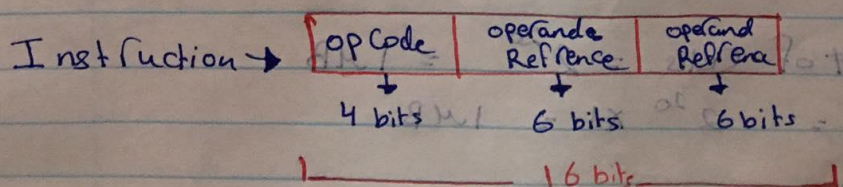 Instruction → opCode operande Refrence operand Refrence
4 bits 6 bits. 6 bits
16 bits